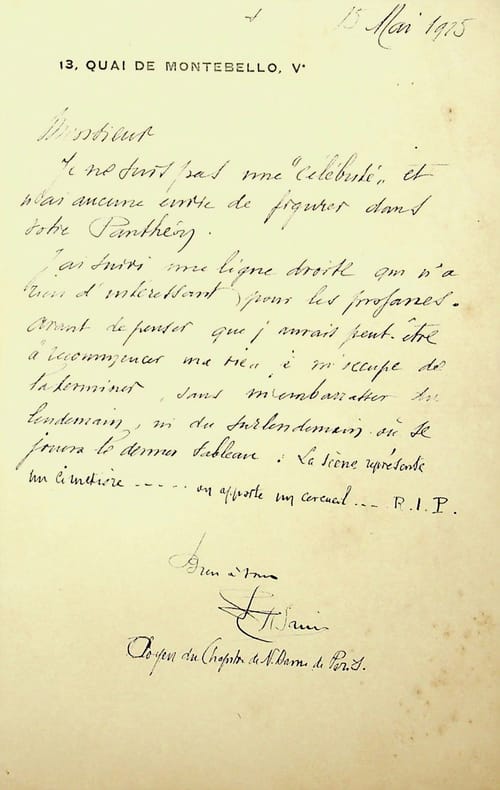 15 Mai 1925
13, QUAI DE MONTEBELLO, Vᵉ
Monsieur
Je ne suis pas une "célébrité" et
n'ai aucune envie de figurer dans
votre Panthéon.
J'ai suivi une ligne droite qui n'a
rien d'intéressant pour les profanes.
avant de penser que j'aurais peut-être
à "recommencer ma vie" je m'occupe de
la terminer, sans m'embarrasser du
lendemain, ni du surlendemain où se
jouera le dernier tableau : La scène représente
un cimetière ----- on apporte un cercueil --- R.I.P.
Bien à vous
Doyen du Chapitre de N. Dame de Paris.